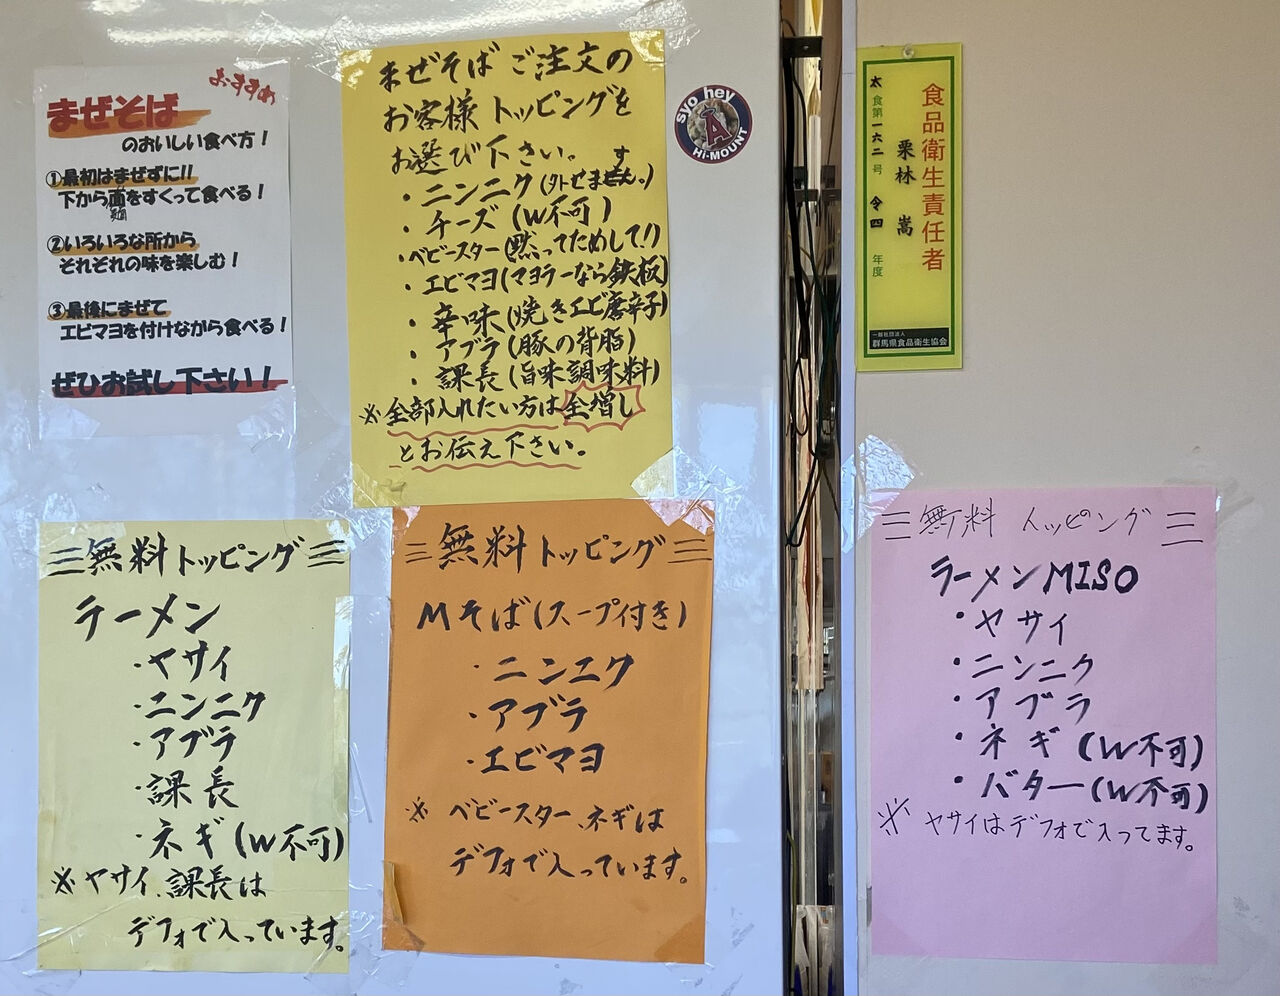 おすすめ
まぜそば
のおいしい食べ方!
①最初はまぜずに!!
下から面をすくって食べる!
麺
②いろいろな所から
それぞれの味を楽しむ!
③最後にまぜて
エビマヨを付けながら食べる!
ぜひお試し下さい!
まぜそばご注文の
お客様トッピングを
お選び下さい。
・ニンニク(外せます。)
・チーズ(W不可)
・ベビースター(黙ってためして!)
・エビマヨ(マヨラーなら鉄板)
・辛味(焼きエビ唐辛子)
・アブラ(豚の背脂)
・課長(旨味調味料)
※全部入れたい方は全増し
とお伝え下さい。
syo hey
A
Hi-MOUNT
食品衛生責任者
栗林 嵩
太食第一六二号 令四年度
一般社団法人
群馬県食品衛生協会
三無料トッピング三
ラーメン
・ヤサイ
・ニンニク
・アブラ
・課長
・ネギ(W不可)
※ヤサイ、課長は
デフォで入っています。
三無料トッピング三
Mそば(スープ付き)
・ニンニク
・アブラ
・エビマヨ
※ベビースター、ネギは
デフォで入っています。
三無料トッピング三
ラーメンMISO
・ヤサイ
・ニンニク
・アブラ
・ネギ(W不可)
・バター(W不可)
※ヤサイはデフォで入ってます。